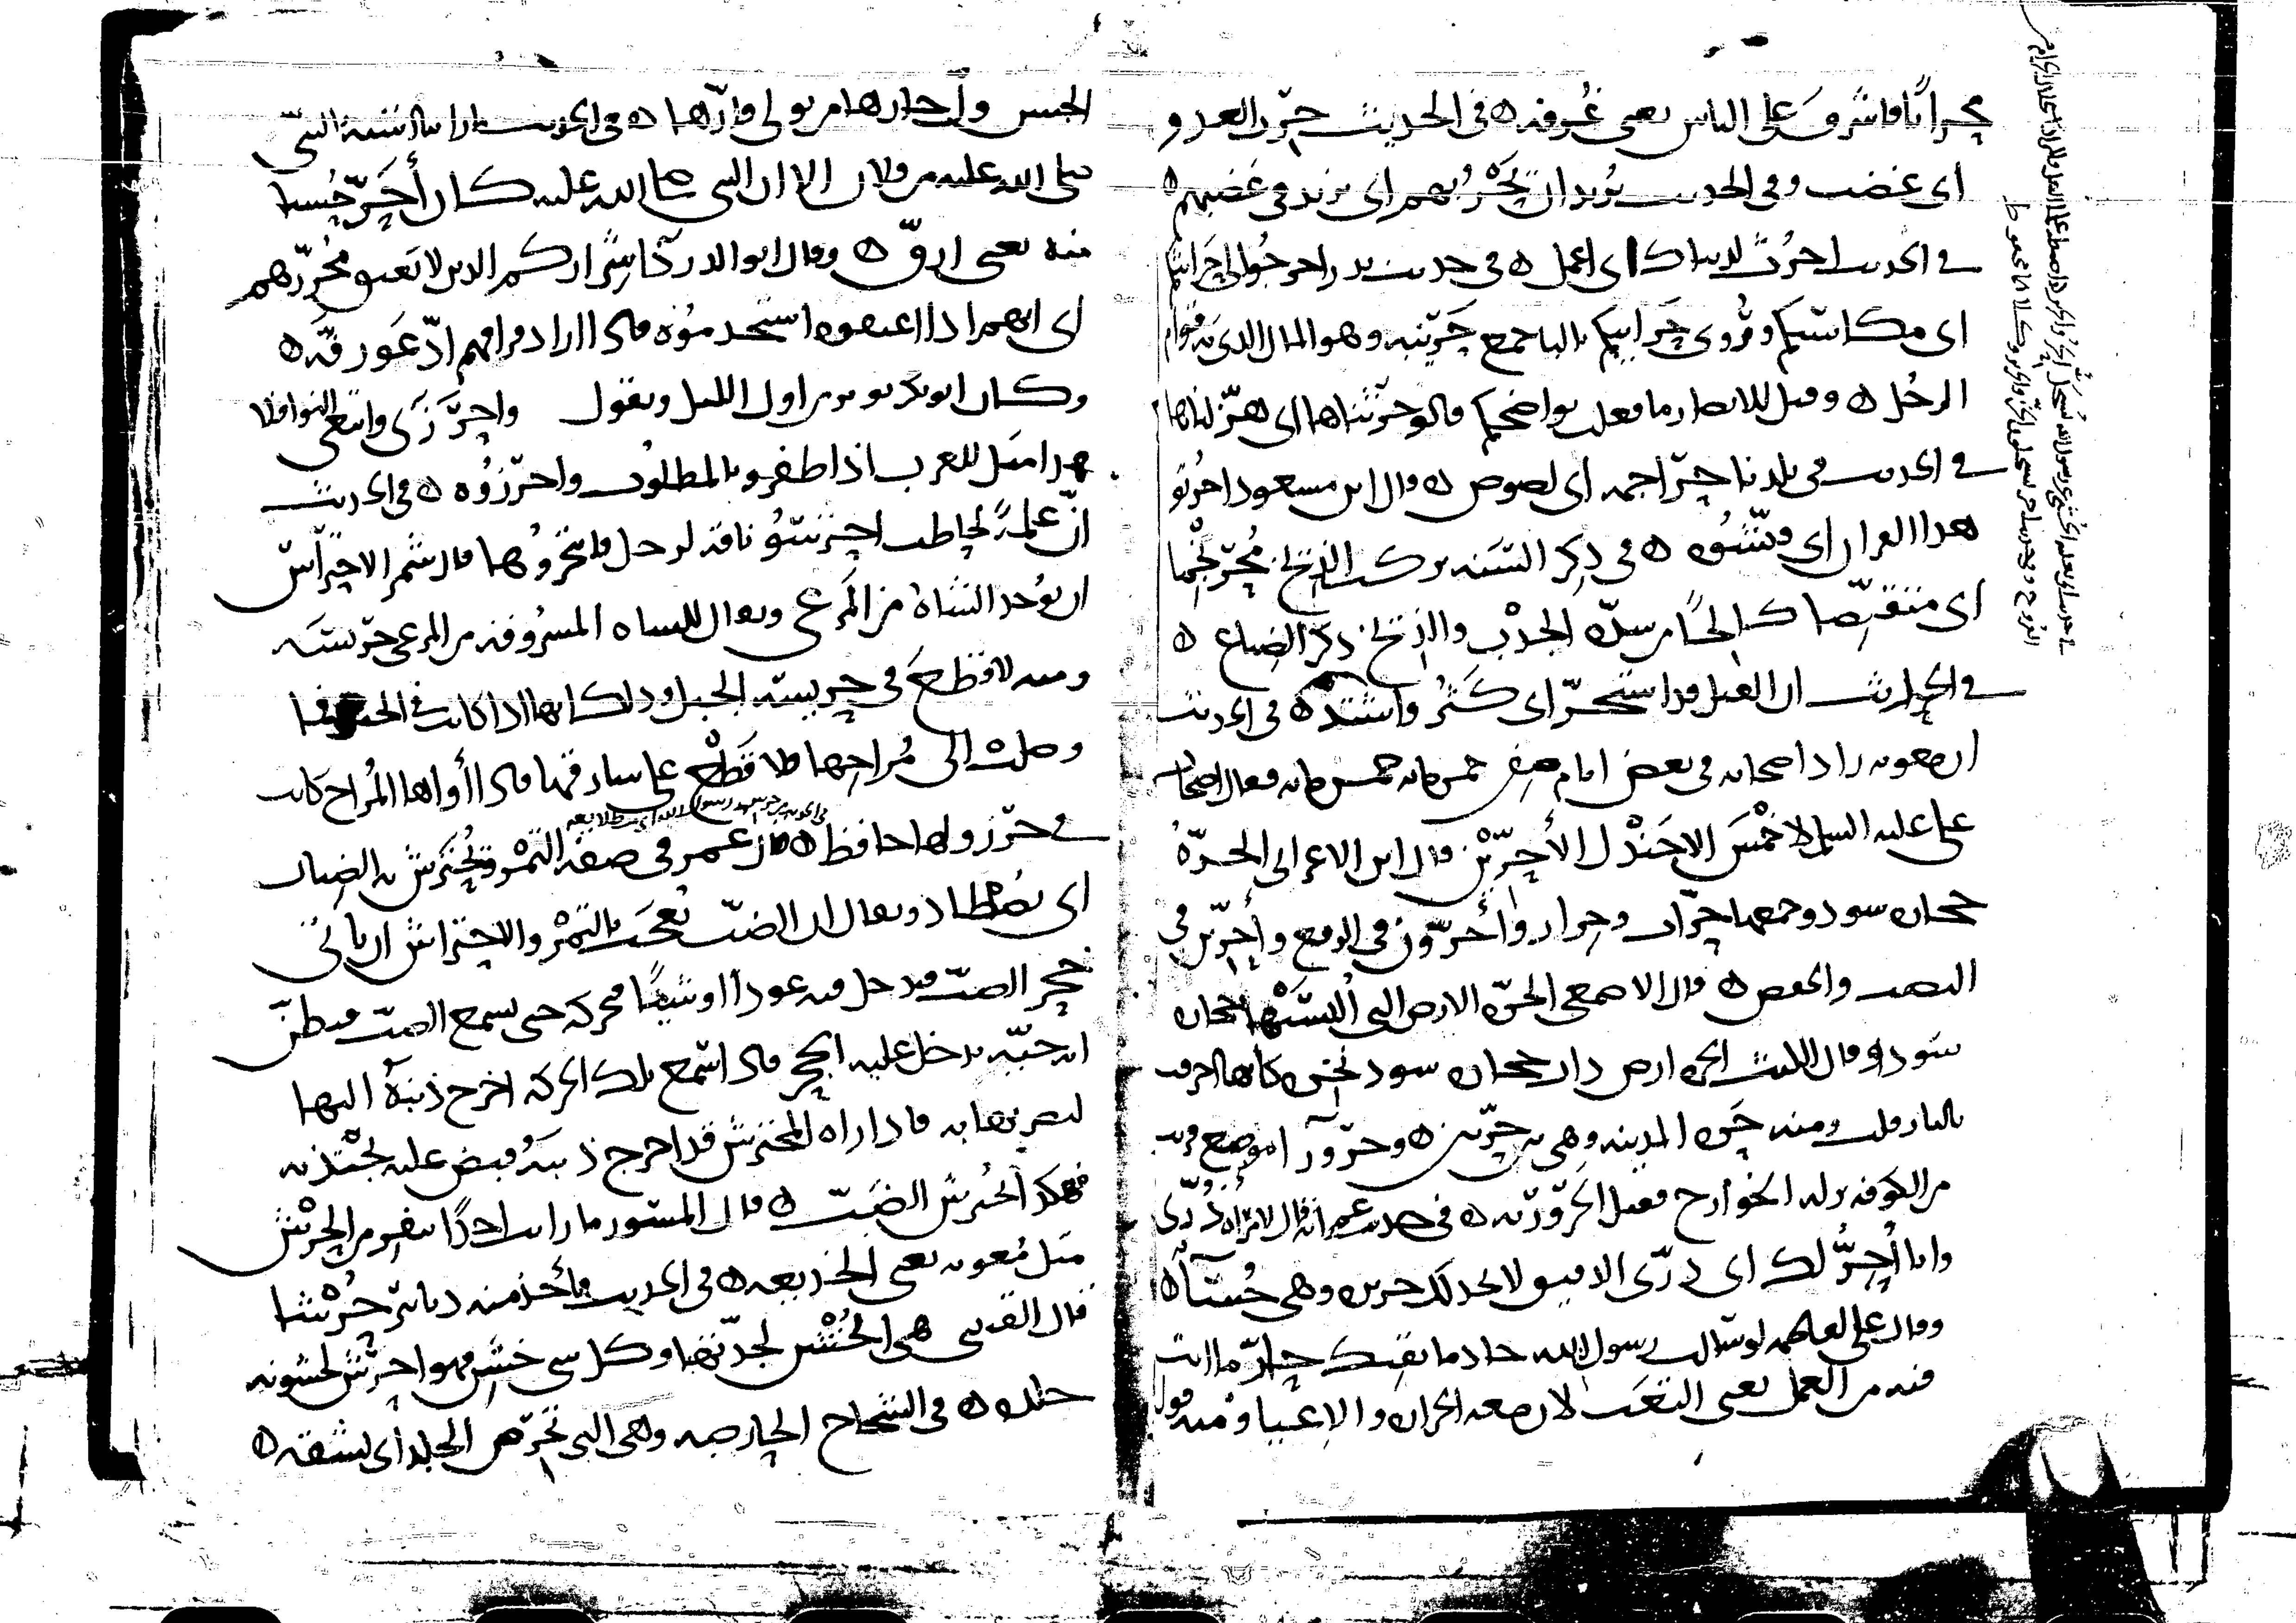 محرابا فاشرف على الناس يعني غرفة ه في الحديث حرب العدو
اي غضب وفي الحديث يريد ان يحربهم اي يزيد في غضبهم ه
في الحديث احرث لدنياك اي اعمل ه في حديث بدر اخرجوا الى حرائثكم
اي مكاسبكم ويروى حرائبكم بالبا جمع حريبة وهو المال الذي به قوام
الرجل ه وقيل للانصار ما فعلت نواضحكم قالو حرثناها اي هزلناها
في الحديث في بلدنا حراجمة اي لصوص ه وقال ابن مسعود احرثو
هذا القران اي فتشوه ه في ذكر السنة تركت الذيخ محرنجما
اي منقبضا كالحا من شدة الجدب والذيخ ذكر الضباع ه
في الحديث ان القتل قد استحر اي كثر واشتد ه في الحديث
ان معوية زاد اصحابه في بعض ايام صفين خمس مائة خمس مائة فقال اصحاب
علي عليه السلم لا خمس الا جندل الاحرين قال ابن الاعرابي الحرة
حجارة سود وجمعها حرات وحرار واحرون في الرفع واحرين في
النصب والخفض ه قال الاصمعي الحرة الارض التي البستها حجارة
سودا وقال الليث الحرة ارض ذات حجارة سود نخرة كانها احرقت
بالنار قلت ومنه حرة المدينة وهي بين حرتين ه وحرورا موضع قريب
من الكوفة نزله الخوارج فقيل الحرورية ه في حديث عمر انه قال لامراة ذري
وانا احر لك اي ذري الدقيق لاتخذ لك حريرة وهي حسا ه
وقال علي لفاطمة لو سالت رسول الله خادما يقيك حار ما انت
فيه من العمل يعني التعب لان معه الحرارة والاعيا ومنه قول
الحسن ول حارها من تولى قارها ه في الحديث ما رايت اشبه بالنبي
صلى الله عليه من فلان الا ان النبي صلى الله عليه كان احر حسنا
منه يعني ارق ه وقال ابو الدردا شراركم الذين لا يعتق محررهم
اي انهم اذا اعتقوه استخدموه فاذا اراد فراقهم ادعو رقه ه
وكان ابو بكر يوتر من اول الليل ويقول واحرزى وابتغي النوافلا
هذا مثل للعرب اذا ظفرو بالمطلوب واحرزوه ه في الحديث
ان غلمة لحاطب احترسو ناقة لرجل فانتحروها قال شمر الاحتراس
ان يوخذ الشاة من المرعى ويقال للشاه المسروقة من المرعى حريسة
ومنه لا قطع في حريسة الجبل وذلك انها اذا كانت في الجبل
وصلت الى مراحها فلا قطع على سارقها فاذا اواها المراح كانت
في حرز ولها حافظ ه قال عمر في صفة التمر وتحترش به الضباب
اي تصطاد ويقال ان الضب يعجب بالتمر والاحتراش ان ياتي
جحر الضب فيدخل فيه عودا او شيئا فيحركه حتى يسمع الضب فيظن
انه حية تدخل عليه الجحر فاذا سمع تلك الحركة اخرج ذنبه اليها
ليضربها به فاذا راه المحترش قد اخرج ذنبه قبض عليه يجتذبه
فهكذا تحترش الضب ه قال المسور ما رايت احدا ينفر من الحرش
مثل معوية يعني الخديعة ه في الحديث فاخذ منه دنانير حرشا
قال القتيبي هي الخشن لجدتها وكل شي خشن فهو احرش لخشونة
جلده ه في الشجاج الحارصة وهي التي تحرص الجلد اي تشقه ه